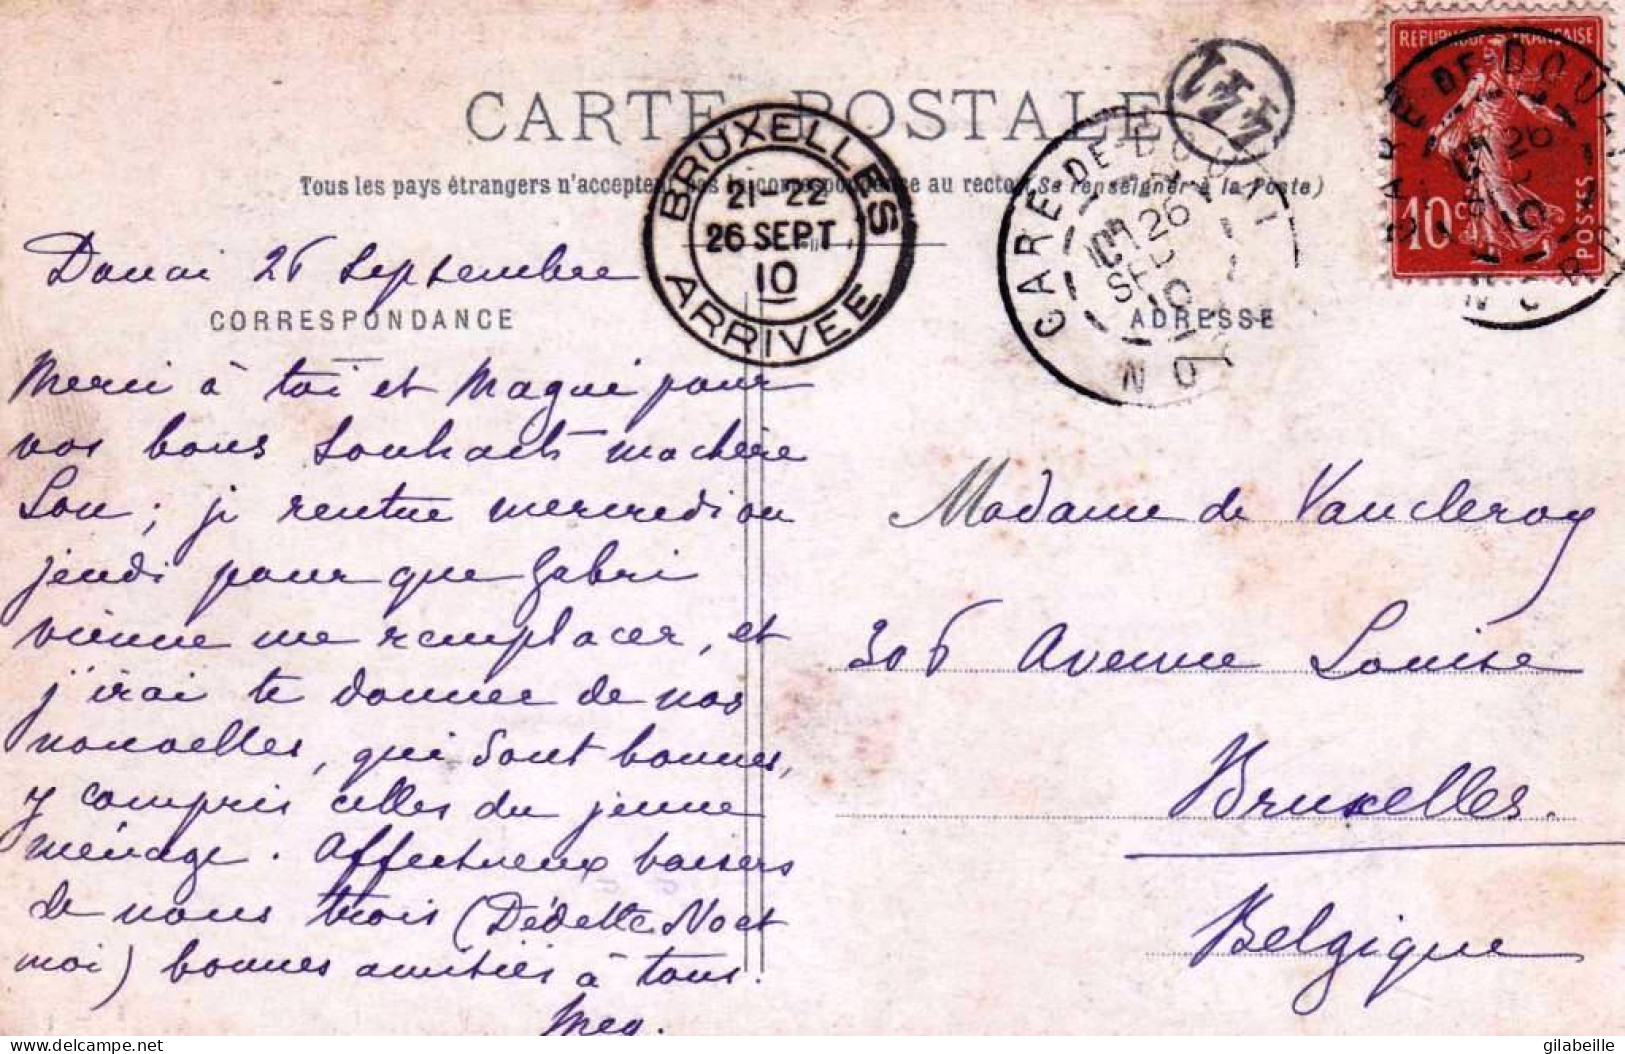 CARTE POSTALE
Tous les pays étrangers n'acceptent pas la correspondance au recto (Se renseigner à la Poste)
BRUXELLES
21-22
26 SEPT
10
ARRIVEE
441
GARE DE DOUAI
26
SEPT
10
NORD
REPUBLIQUE FRANÇAISE
10 c
POSTES
GARE DE DOUAI
26
10
NORD
Douai 26 Septembre
CORRESPONDANCE
Merci à toi et Magui pour
vos bons souhaits ma chère
Lou ; je rentre mercredi ou
jeudi pour que Gabri
vienne me remplacer, et
j'irai te donner de nos
nouvelles, qui sont bonnes,
y compris celles du jeune
ménage. Affectueux baisers
de nous trois (Dédette No et
moi) bonnes amitiés à tous.
Meg.
ADRESSE
Madame de Vaucleroy
306 Avenue Louise
Bruxelles.
Belgique
delcampe.net
gilabeille